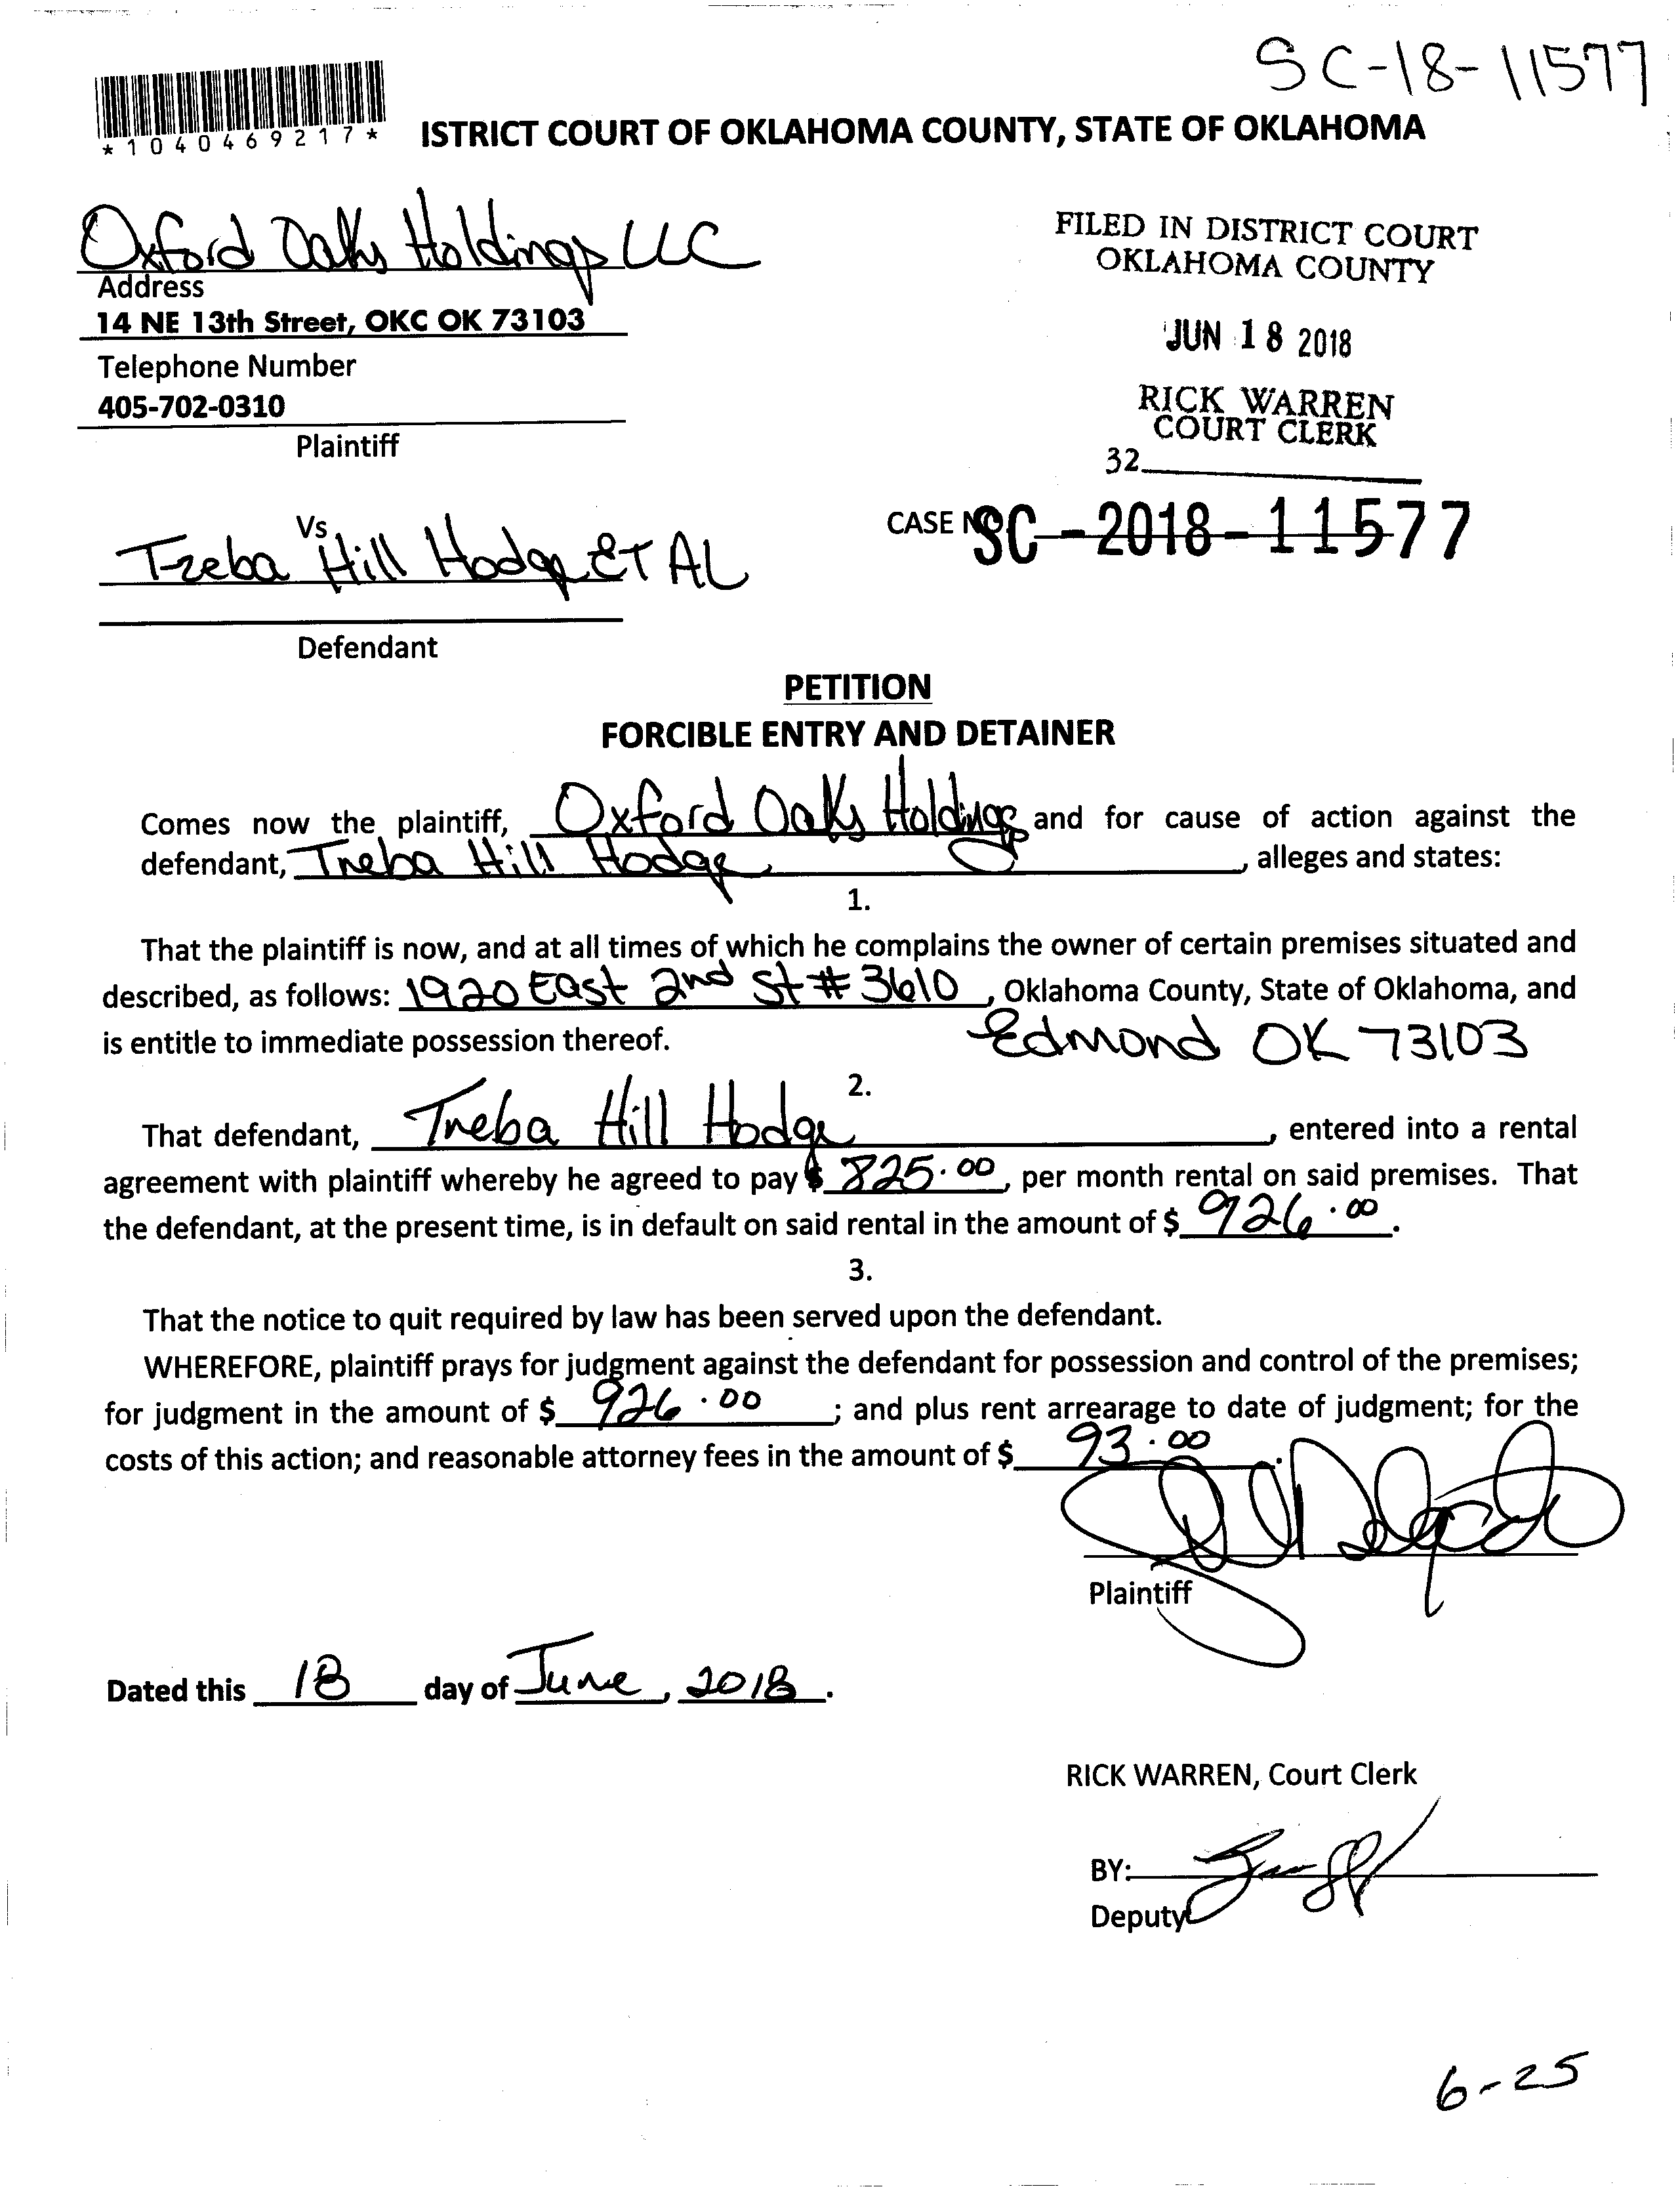 SC-18-11577
*1040469217*
ISTRICT COURT OF OKLAHOMA COUNTY, STATE OF OKLAHOMA
Oxford Oaks Holdings LLC
Address
14 NE 13th Street, OKC OK 73103
Telephone Number
405-702-0310
Plaintiff
FILED IN DISTRICT COURT
OKLAHOMA COUNTY
JUN 18 2018
RICK WARREN
COURT CLERK
32
Vs
Treba Hill Hodge ET AL
Defendant
CASE NO. SC-2018-11577
PETITION
FORCIBLE ENTRY AND DETAINER
Comes now the plaintiff, Oxford Oaks Holdings and for cause of action against the
defendant, Treba Hill Hodge, alleges and states:
1.
That the plaintiff is now, and at all times of which he complains the owner of certain premises situated and
described, as follows: 1920 East 2nd St # 3610, Oklahoma County, State of Oklahoma, and
is entitle to immediate possession thereof. Edmond OK 73103
2.
That defendant, Treba Hill Hodge, entered into a rental
agreement with plaintiff whereby he agreed to pay $ 825.00, per month rental on said premises. That
the defendant, at the present time, is in default on said rental in the amount of $ 926.00.
3.
That the notice to quit required by law has been served upon the defendant.
WHEREFORE, plaintiff prays for judgment against the defendant for possession and control of the premises;
for judgment in the amount of $ 926.00; and plus rent arrearage to date of judgment; for the
costs of this action; and reasonable attorney fees in the amount of $ 93.00.
Plaintiff
Dated this 18 day of June, 2018.
RICK WARREN, Court Clerk
BY:
Deputy
6-25